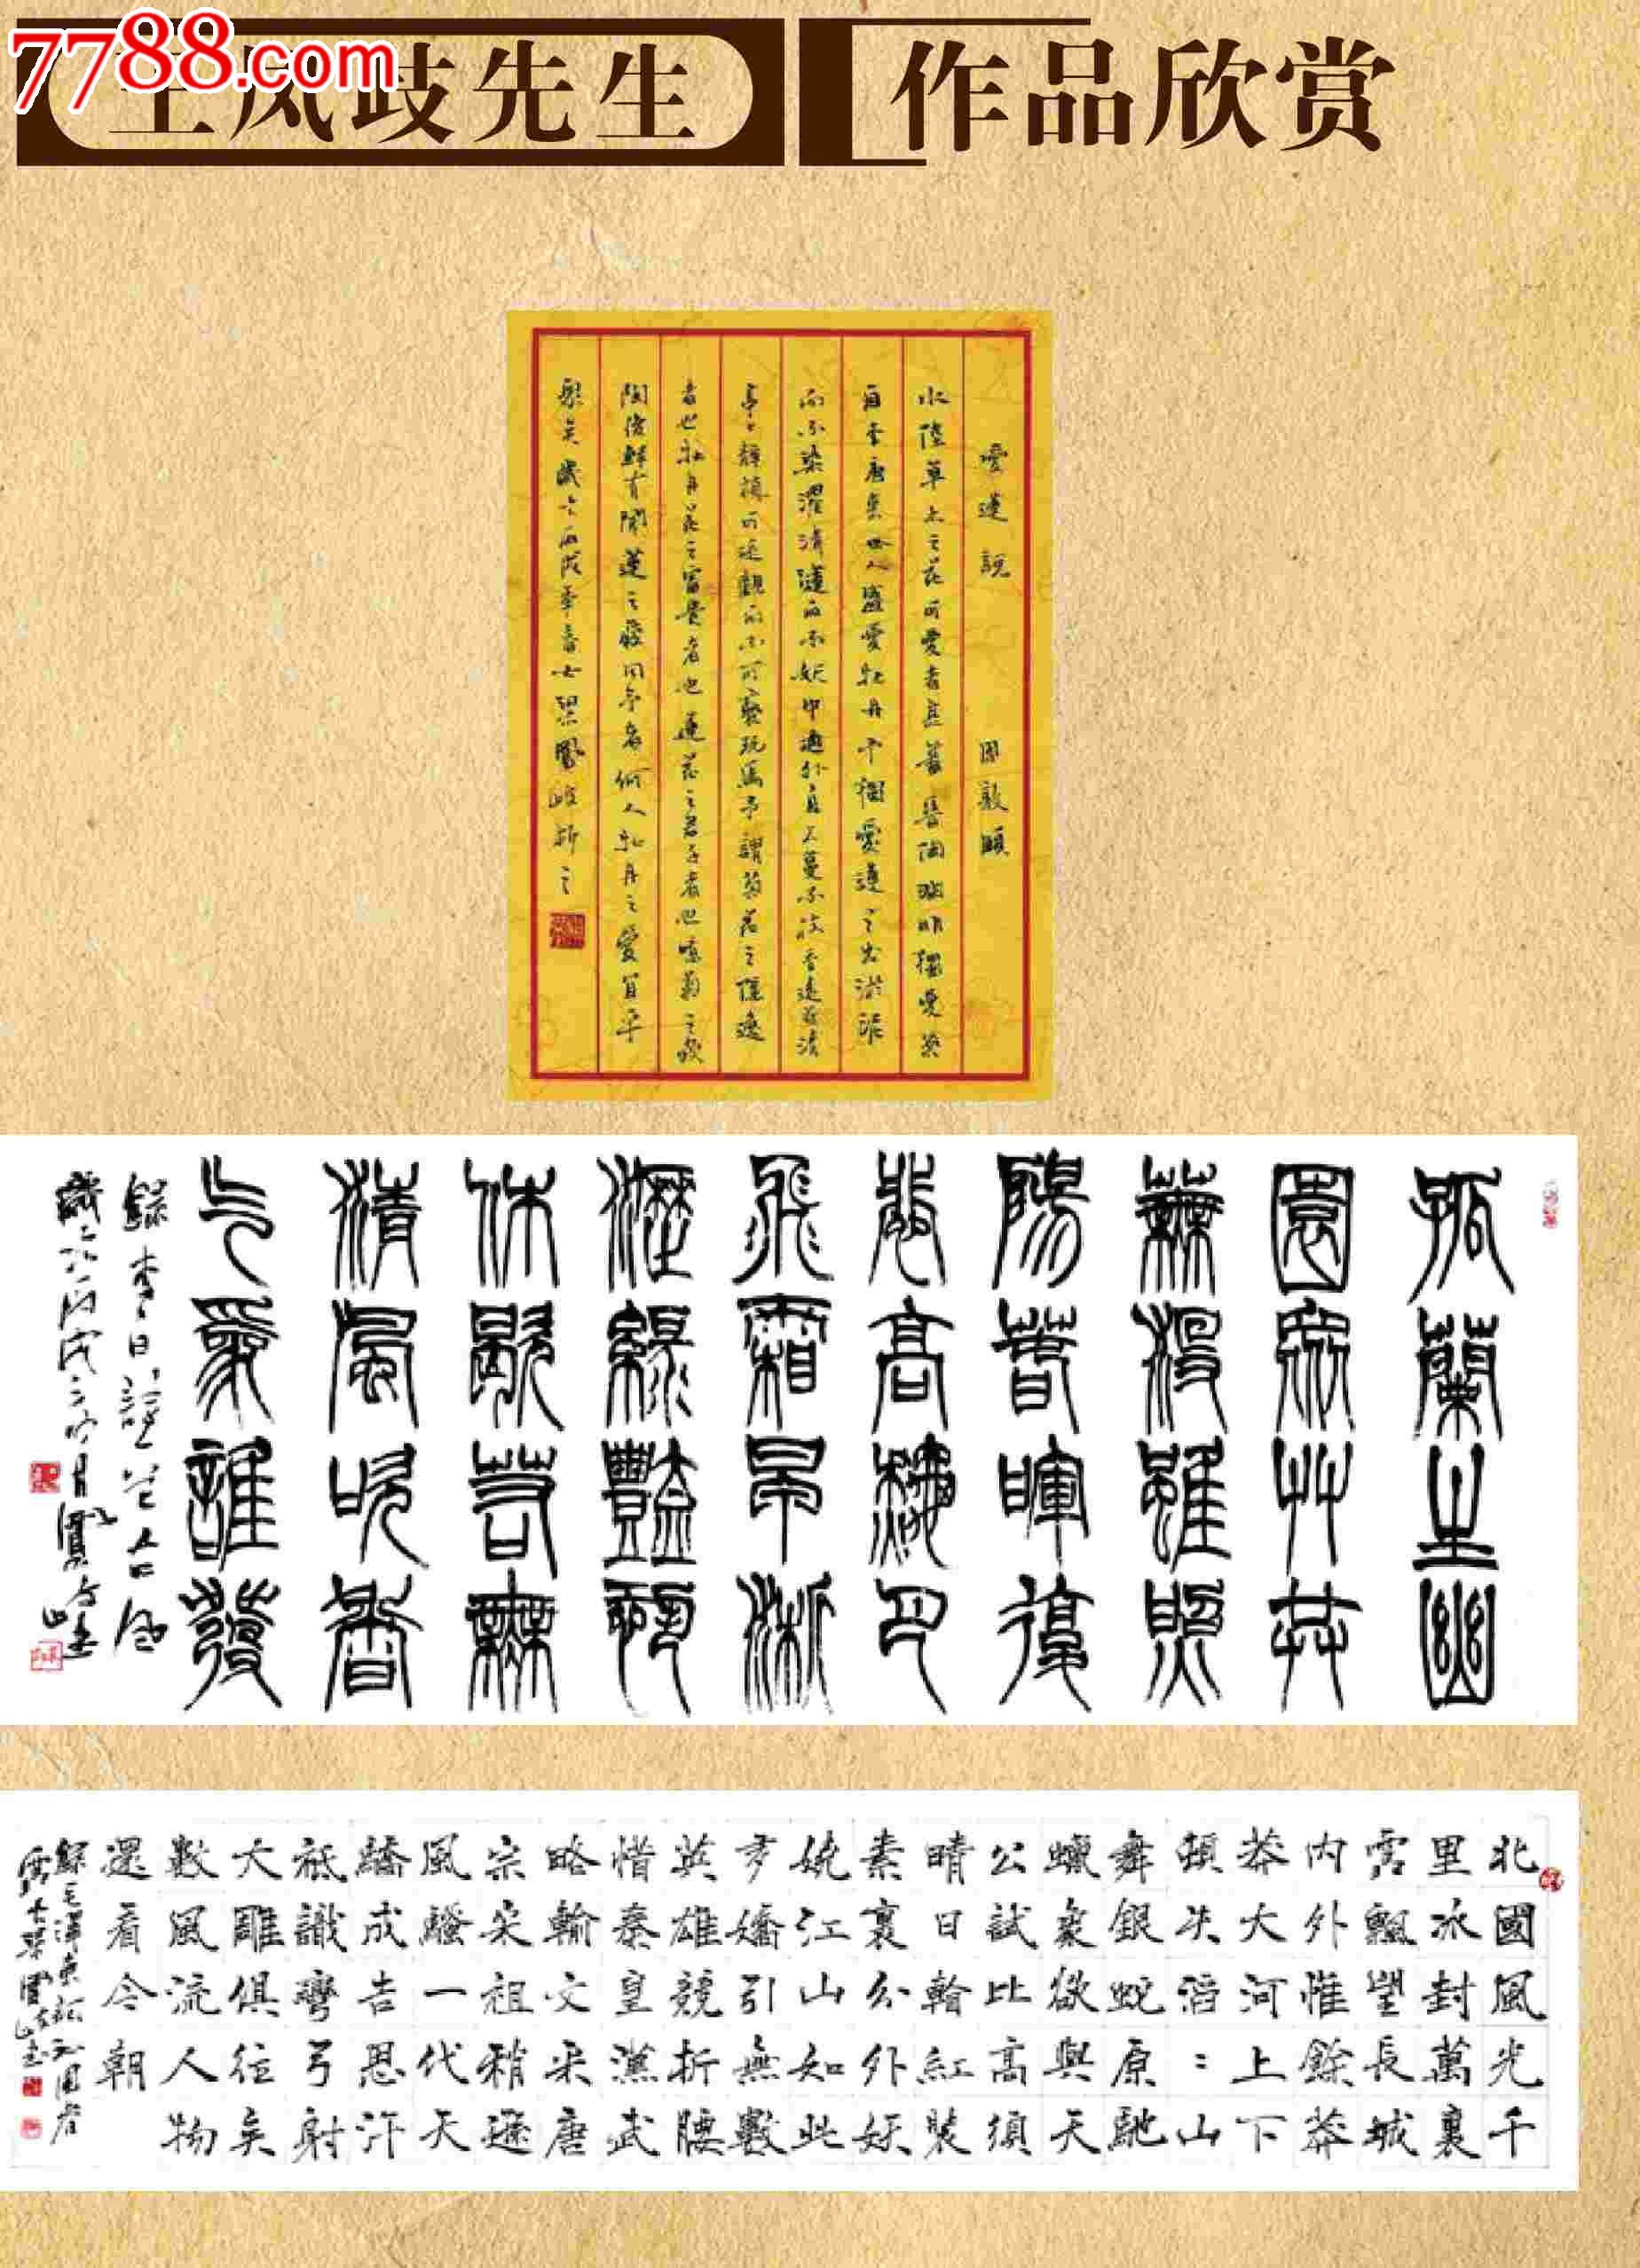 7788.com
王风歧先生 作品欣赏
愛蓮說 周敦頤
水陸草木之花可愛者甚蕃晉陶淵明獨愛菊
自李唐來世人盛愛牡丹予獨愛蓮之出淤泥
而不染濯清漣而不妖中通外直不蔓不枝香遠益清
亭亭靜植可遠觀而不可褻玩焉予謂菊花之隱逸
者也牡丹花之富貴者也蓮花之君子者也噫菊之愛
陶後鮮有聞蓮之愛同予者何人牡丹之愛宜乎
衆矣歲次丙戌年
孤蘭生幽
園眾艸共
蕪沒雖照
陽春暉復
悲高秋月
飛霜早淅
瀝綠豔恐
休歇苟無
清風吹香
氣為誰發
錄李白詩
北國風光千
里冰封萬裏
雪飄望長城
內外惟餘莽
莽大河上下
頓失滔滔山
舞銀蛇原馳
蠟象欲與天
公試比高須
晴日輪紅裝
素裹分外妖
嬈江山如此
多嬌引無數
英雄競折腰
惜秦皇漢武
略輸文采唐
宗宋祖稍遜
風騷一代天
驕成吉思汗
祗識彎弓射
大雕俱往矣
數風流人物
還看今朝
錄毛澤東